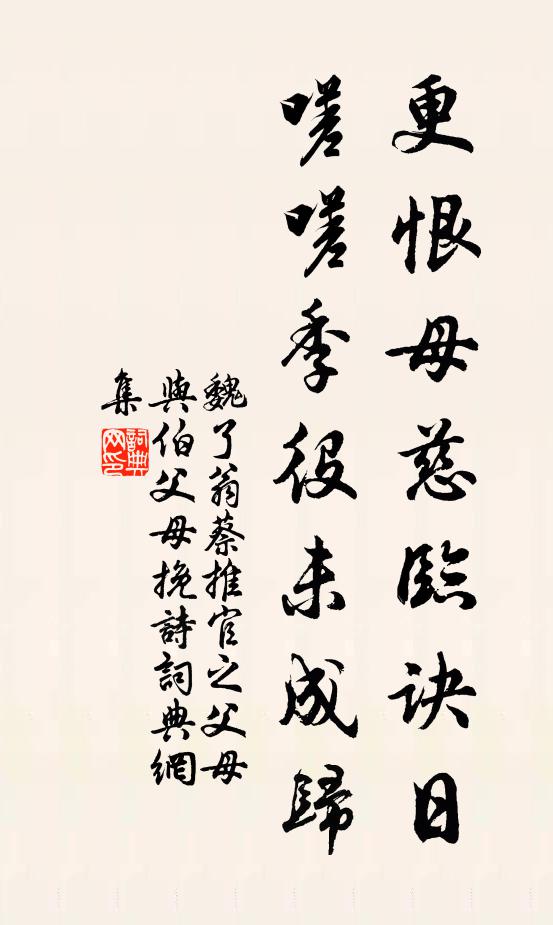 更恨母慈臨訣日
嗟嗟季役未成歸
魏了翁蔡推官之父母
與伯父母挽詩詞典網
集
詞典
网印